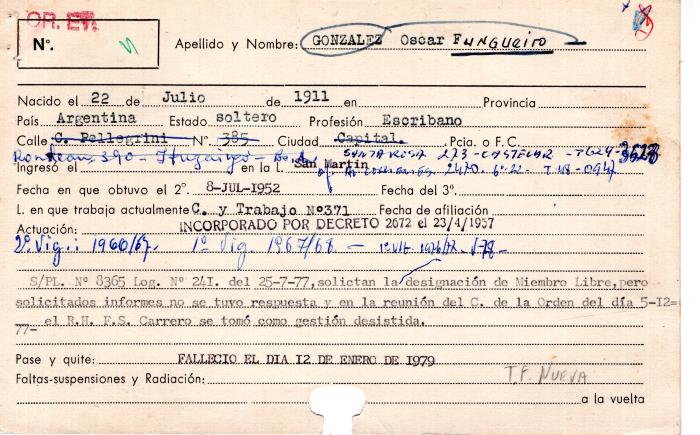 OR. ET.
N°.
Apellido y Nombre: GONZALEZ Oscar Fungueiro
Nacido el 22 de Julio de 1911 en Provincia
País Argentina Estado soltero Profesión Escribano
Calle C. Pellegrini N° 385 Ciudad Capital. Pcia. o F. C.
Rondeau 390 - Ituzaingo - SANTA ROSA 273 - CASTELAR - T624-3628
Ingresó el en la L. San Martin Av. 2420 6° T 48-0947
Fecha en que obtuvo el 2°. 8-JUL-1952 Fecha del 3°.
L. en que trabaja actualmente C. y Trabajo Nº371 Fecha de afiliación
Actuación: INCORPORADO POR DECRETO 2672 el 23/4/1957
2° Vig.: 1960/67. 1° Vig. 1967/68 - 1° Vig. 1976/77 - /78 -
S/PL. Nº 8365 Log. Nº 24I. del 25-7-77, solictan la designación de Miembro Libre, pero
solicitados informes no se tuvo respuesta y en la reunión del C. de la Orden del día 5-I2=
77- el R.H. F.S. Carrero se tomó como gestión desistida.
Pase y quite: FALLECIO EL DIA I2 DE ENERO DE I979
Faltas-suspensiones y Radiación: T.F. NUEVA
a la vuelta